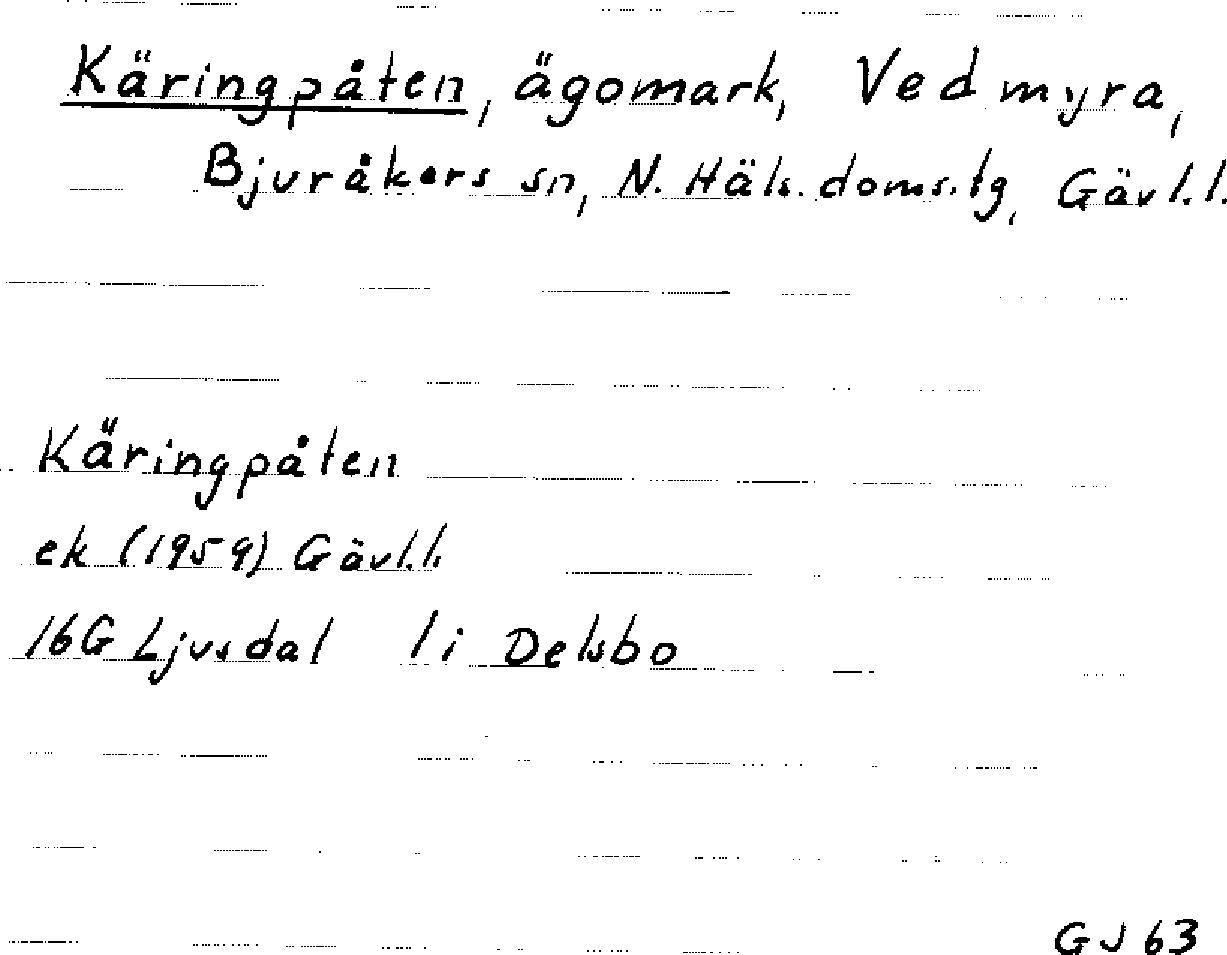 Käringpåten, ägomark, Vedmyra,
Bjuråkers sn, N. Häls. doms.tg, Gävl.l.
Käringpåten
ek (1959) Gävl.l.
16G Ljusdal 1i Delsbo
GJ 63